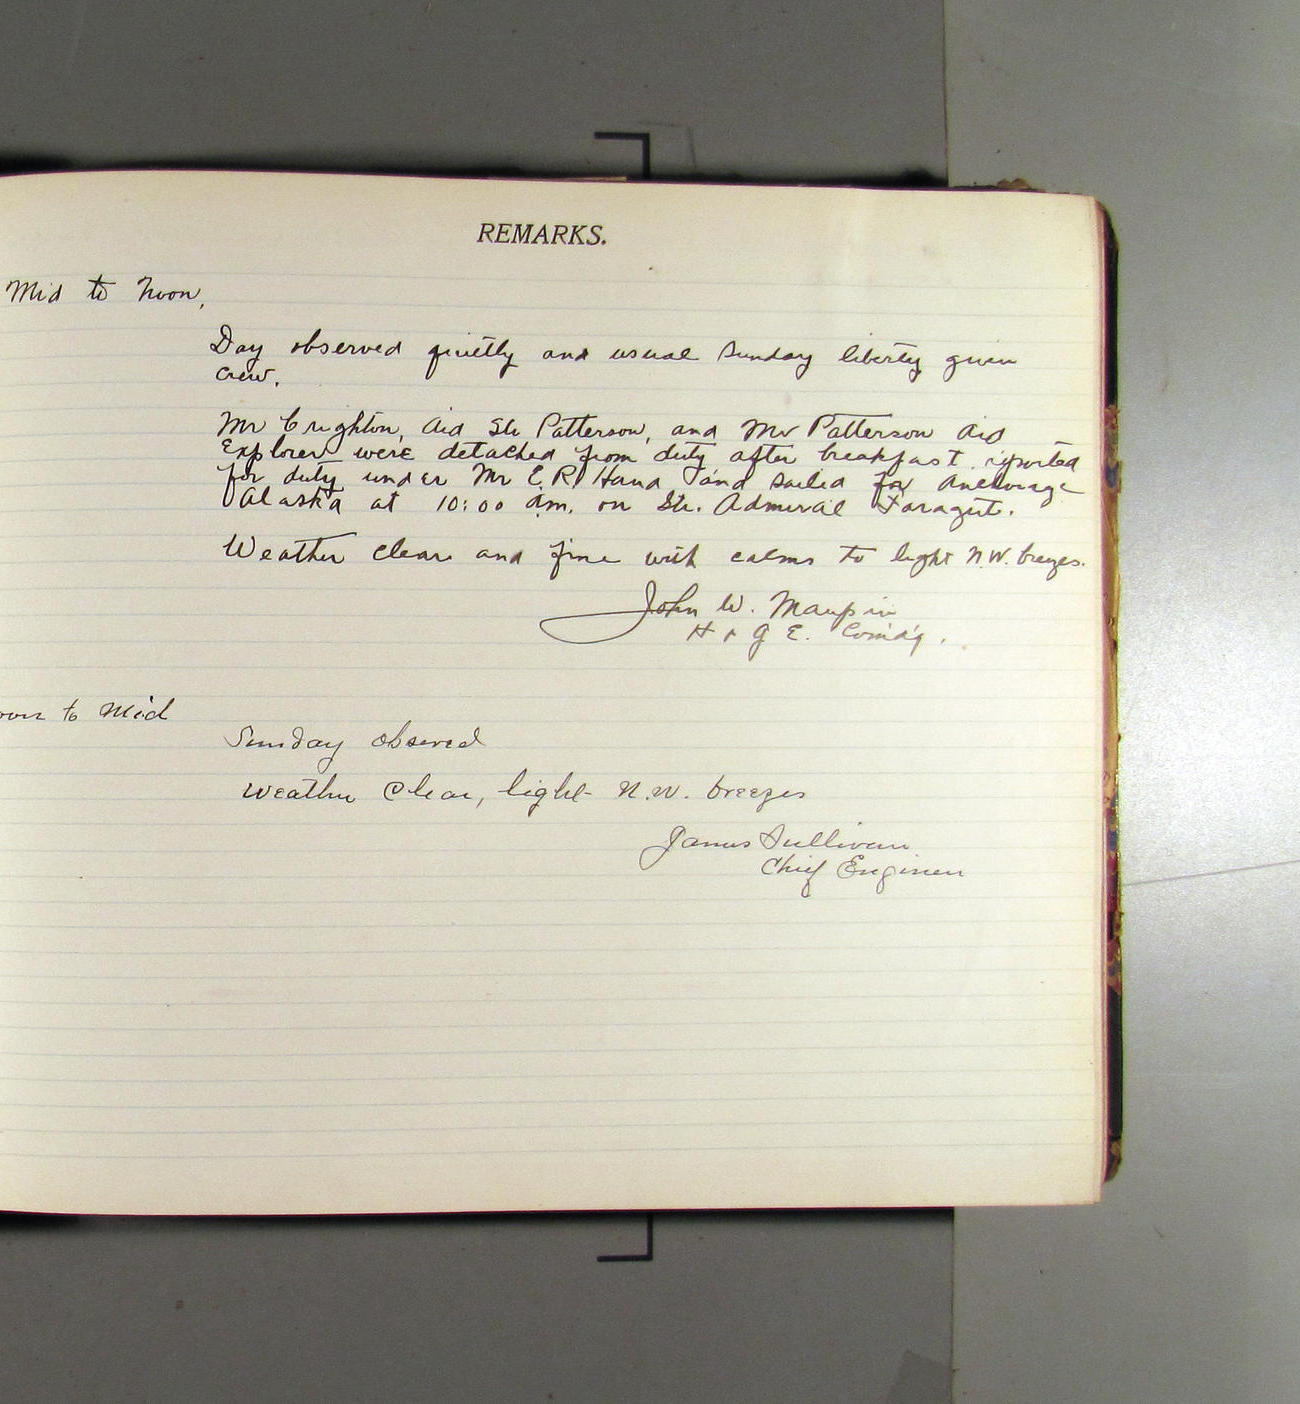 REMARKS.
Mid to Noon,
Day observed quietly and usual Sunday liberty given
crew.
Mr Crighton, Aid Str Patterson, and Mr Patterson Aid
Explorer were detached from duty after breakfast reported
for duty under Mr E. R. Hand and sailed for Anchorage
Alaska at 10:00 am. on Str. Admiral Faragut.
Weather clear and fine with calms to light N.W. breezes.
John W. Maupin
H + G E. Com'd'g.
oon to Mid
Sunday observed
Weather Clear, light N.W. breezes
James Sullivan
Chief Engineer